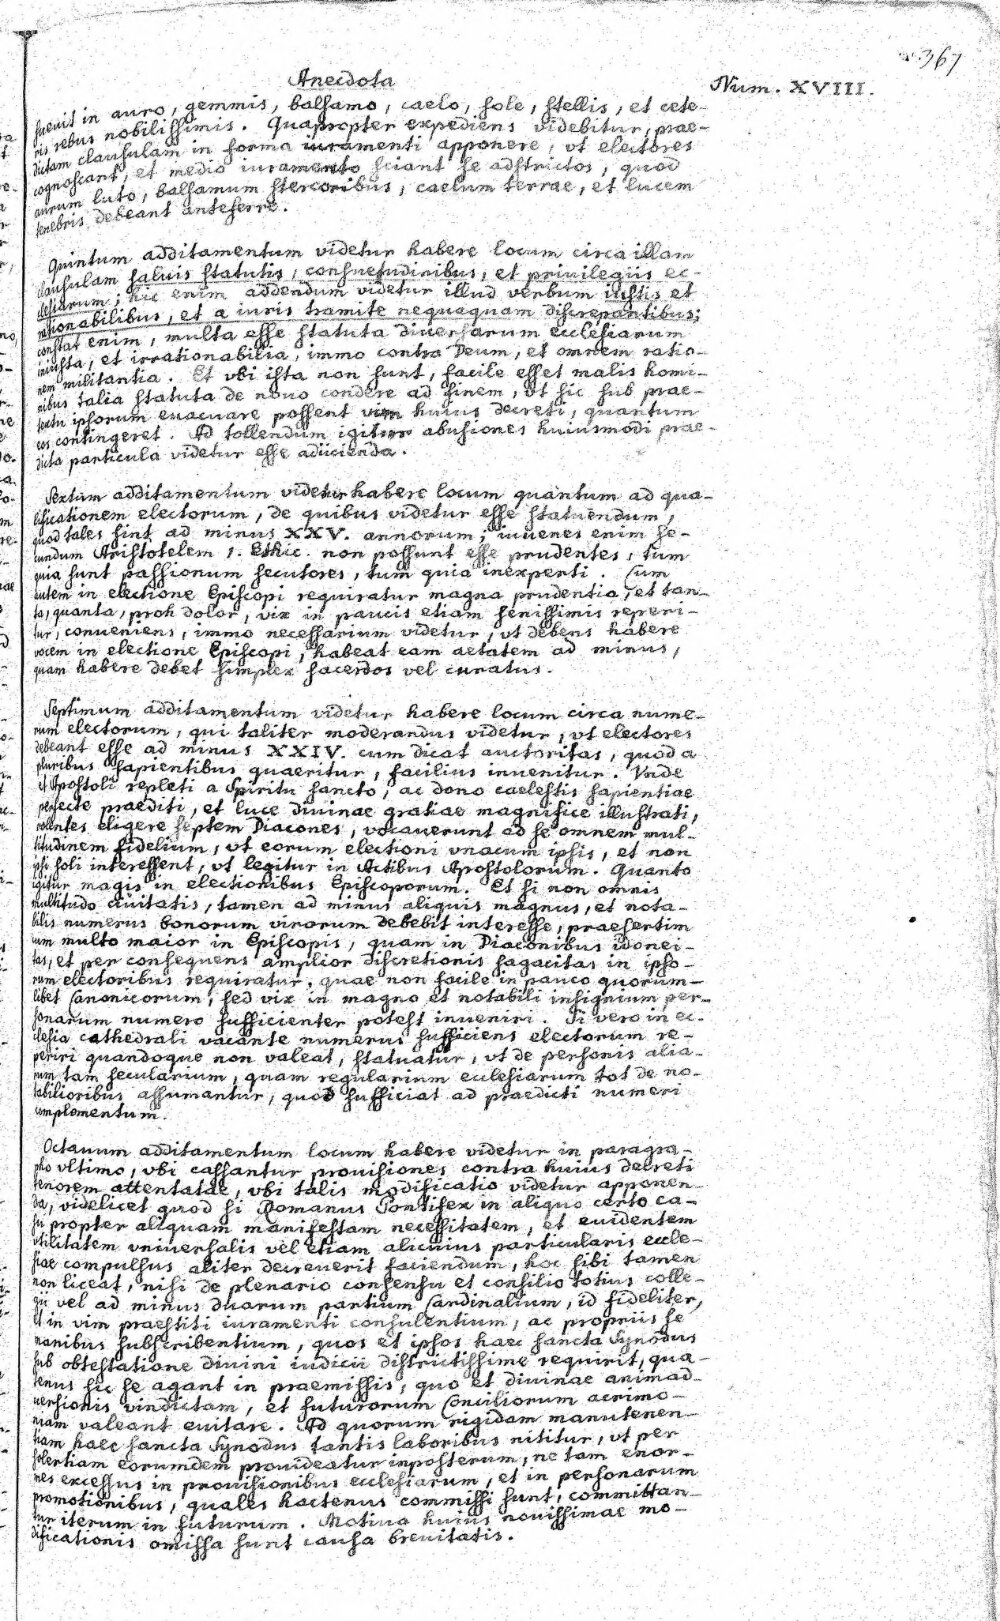 367
Anecdota
Num. XVIII.
fuerit in auro, gemmis, balsamo, caelo, sole, stellis, et cete-
ris rebus nobilissimis. Quapropter expediens videbitur, prae-
dictam clausulam in forma iuramenti apponere, vt electores
cognoscant, et medio iuramento sciant se adstrictos, quod
aurum luto, balsamum stercoribus, caelum terrae, et lucem
tenebris debeant anteferre.
Quintum additamentum videtur habere locum circa illam
clausulam saluis statutis, consuetudinibus, et priuilegiis ec-
clesiarum; hic enim addendum videtur illud verbum iustis et
rationabilibus, et a iuris tramite nequaquam discrepantibus;
constat enim, multa esse statuta diuersarum ecclesiarum
iniusta, et irrationabilia, immo contra Deum, et omnem ratio-
nem militantia. Et vbi ista non sunt, facile esset malis homi-
nibus talia statuta de nouo condere ad finem, vt sic sub prae-
textu ipsorum euacuare possent vim huius decreti, quantum
eos contingeret. Ad tollendum igitur abusiones huiusmodi prae-
dicta particula videtur esse adiicienda.
Sextum additamentum videtur habere locum quantum ad qua-
lificationem electorum, de quibus videtur esse statuendum,
quod tales sint ad minus XXV. annorum; iuuenes enim se-
cundum Aristotelem 1. Ethic. non possunt esse prudentes, tum
quia sunt passionum secutores, tum quia inexperti. Cum
autem in electione Episcopi requiratur magna prudentia, et tan-
ta, quanta, proh dolor, vix in paucis etiam senissimis reperi-
tur, conueniens, immo necessarium videtur, vt debens habere
vocem in electione Episcopi, habeat eam aetatem ad minus,
quam habere debet simplex sacerdos vel curatus.
Septimum additamentum videtur habere locum circa nume-
rum electorum, qui taliter moderandus videtur, vt electores
debeant esse ad minus XXIV. cum dicat auctoritas, quod a
pluribus sapientibus quaeritur, facilius inuenitur. Vnde
et Apostoli repleti a Spiritu sancto, ac dono caelestis sapientiae
perfecte praediti, et luce diuinae gratiae magnifice illustrati,
volentes eligere septem Diacones, vocauerunt ad se omnem mul-
titudinem fidelium, vt eorum electioni vnacum ipsis, et non
ipsi soli interessent, vt legitur in Actibus Apostolorum. Quanto
igitur magis in electionibus Episcoporum. Et si non omnis
multitudo ciuitatis, tamen ad minus aliquis magnus, et nota-
bilis numerus bonorum virorum debebit interesse, praesertim
cum multo maior in Episcopis, quam in Diaconibus idonei-
tas, et per consequens amplior discretionis sagacitas in ipso-
rum electoribus requiratur, quae non facile in pauco quorum-
libet Canonicorum, sed vix in magno et notabili insignium per-
sonarum numero sufficienter potest inueniri. Si vero in ec-
clesia cathedrali vacante numerus sufficiens electorum re-
periri quandoque non valeat, statuatur, vt de personis alia-
rum tam secularium, quam regularium ecclesiarum tot de no-
tabilioribus assumantur, quod sufficiat ad praedicti numeri
complementum.
Octauum additamentum locum habere videtur in paragra-
pho vltimo, vbi cassantur prouisiones contra huius decreti
tenorem attentatae, vbi talis modificatio videtur apponen-
da, videlicet quod si Romanus Pontifex in aliquo certo ca-
su propter aliquam manifestam necessitatem, et euidentem
vtilitatem vniuersalis vel etiam alicuius particularis eccle-
siae compulsus aliter decreuerit faciendum, hoc sibi tamen
non liceat, nisi de plenario consensu et consilio totius colle-
gii vel ad minus duarum partium Cardinalium, id fideliter,
et in vim praestiti iuramenti consulentium, ac propriis se
manibus subscribentium, quos et ipsos haec sancta Synodus
sub obtestatione diuini iudicii districtissime requirit, qua-
tenus sic se agant in praemissis, quo et diuinae animad-
uersionis vindictam, et futurorum Conciliorum acrimo-
niam valeant euitare. Ad quorum rigidam manutenen-
tiam haec sancta Synodus tantis laboribus nititur, vt per
solertiam eorumdem prouideatur inposterum, ne tam enor-
mes excessus in prouisionibus ecclesiarum, et in personarum
promotionibus, quales hactenus commissi sunt, committan-
tur iterum in futurum. Motiua huius nouissimae mo-
dificationis omissa sunt causa breuitatis.